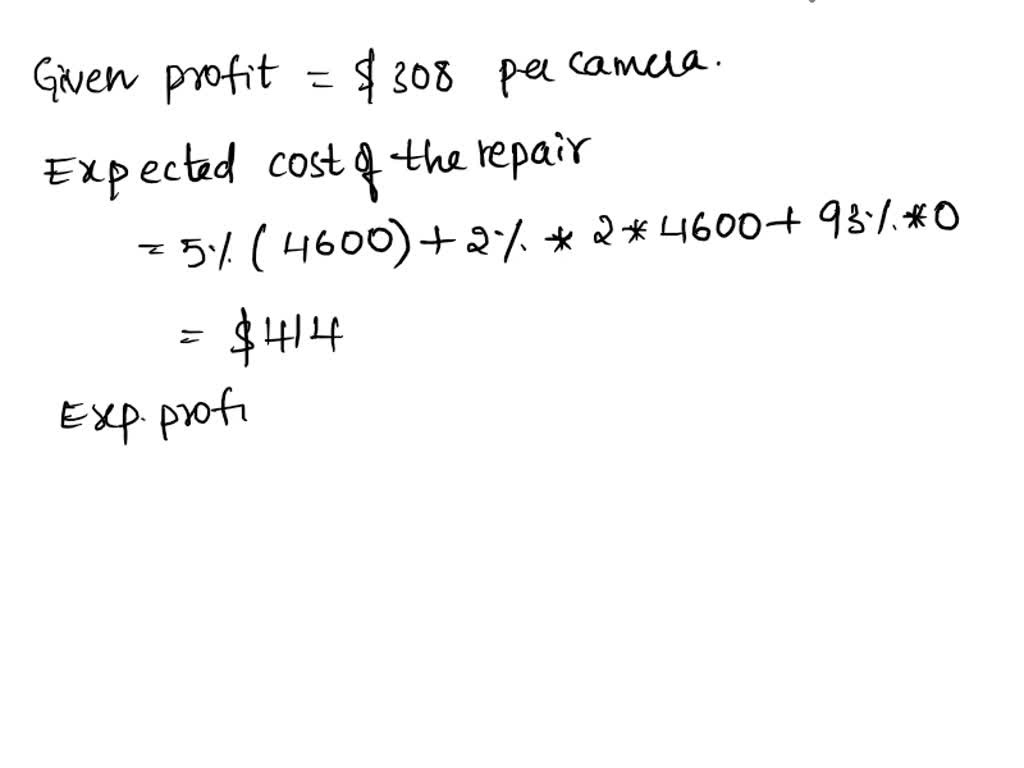 Given profit = $ 308 per camera.
Expected cost of the repair
= 5% (4600) + 2% * 2 * 4600 + 93% * 0
= $ 414
Exp. profi